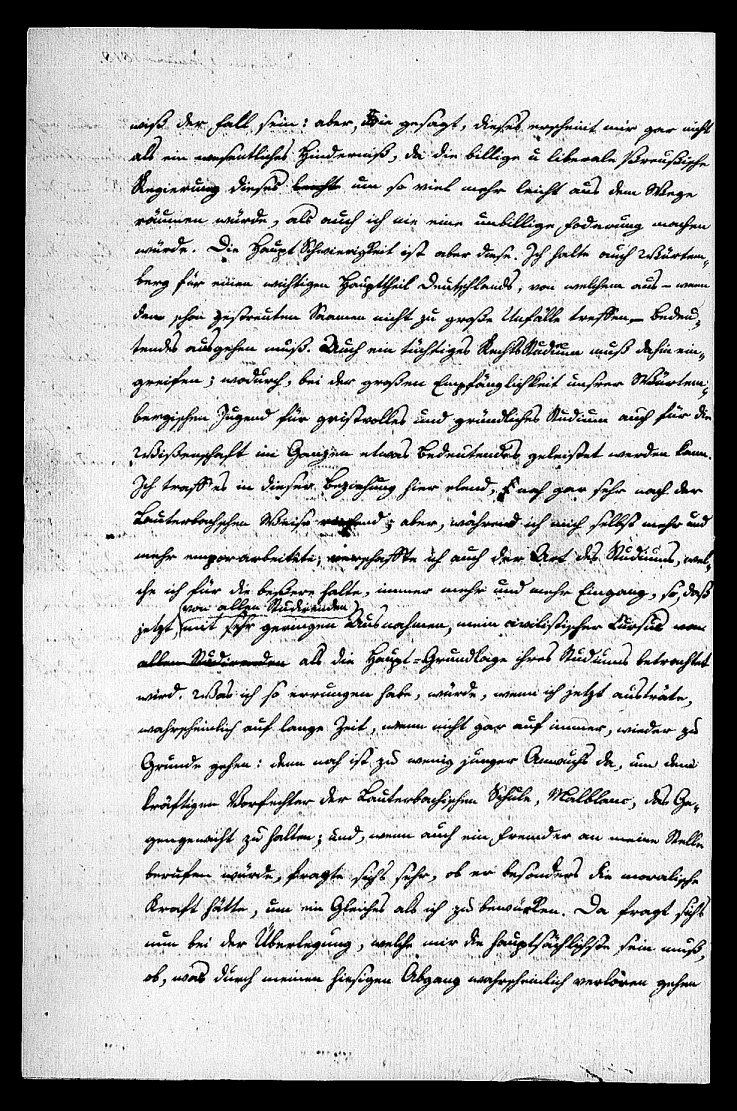 niß der Fall sein: aber, wie gesagt, dieses erscheint mir gar nicht
als ein wesentliches Hinderniß, da die billige u liberale Preußische
Regierung dieses leicht um so viel mehr leicht aus dem Wege
räumen würde, als auch ich nie eine unbillige Foderung machen
würde. Die HauptSchwierigkeit ist aber diese. Ich halte auch Würtem-
berg für einen wichtigen Haupttheil Deutschlands, von welchem aus – wenn
den schon zerstreuten Saamen nicht zu große Unfälle treffen – bedeu-
tendes ausgehen muß. Auch ein tüchtiges RechtsStudium muß dahin ein-
greifen; wodurch, bei der großen Empfänglichkeit unsrer Würtem-
bergischen Jugend für geistvolles und gründliches Studium auch für die
Wißenschaft im Ganzen etwas Bedeutendes geleistet werden kann.
Ich traff es in dieser Beziehung hier elend, noch gar sehr nach der
Lauterbachschen Weise; aber, während ich mich selbst mehr und
mehr emporarbeitete, verschaffte ich auch der Art des Studiums, wel-
che ich für die beßere halte, immer mehr und mehr Eingang, so, daß
(von allen Studirenden)
jetzt, mit sehr geringen Ausnahmen, mein civilistischer Cursus von
allen Studirenden als die Haupt-Grundlage ihres Studiums betrachtet
wird. Was ich so errungen habe, würde, wenn ich jetzt austräte,
wahrscheinlich auf lange Zeit, wenn nicht gar auf immer, wieder zu
Grunde gehen: denn noch ist zu wenig junger Anwuchs da, um dem
kräftigen Vorfechter der Lauterbachischen Schule, Malblanc, das Ge-
gengewicht zu halten; und, wenn auch ein Fremder an meine Stelle
berufen würde, fragte sichs sehr, ob er besonders die moralische
Kraft hätte, um ein Gleiches als ich zu bewürken. Da fragt sichs
nun bei der Überlegung, welche mir die hauptsächlichste sein muß,
ob, was durch meinen hiesigen Abgang wahrscheinlich verloren gehen